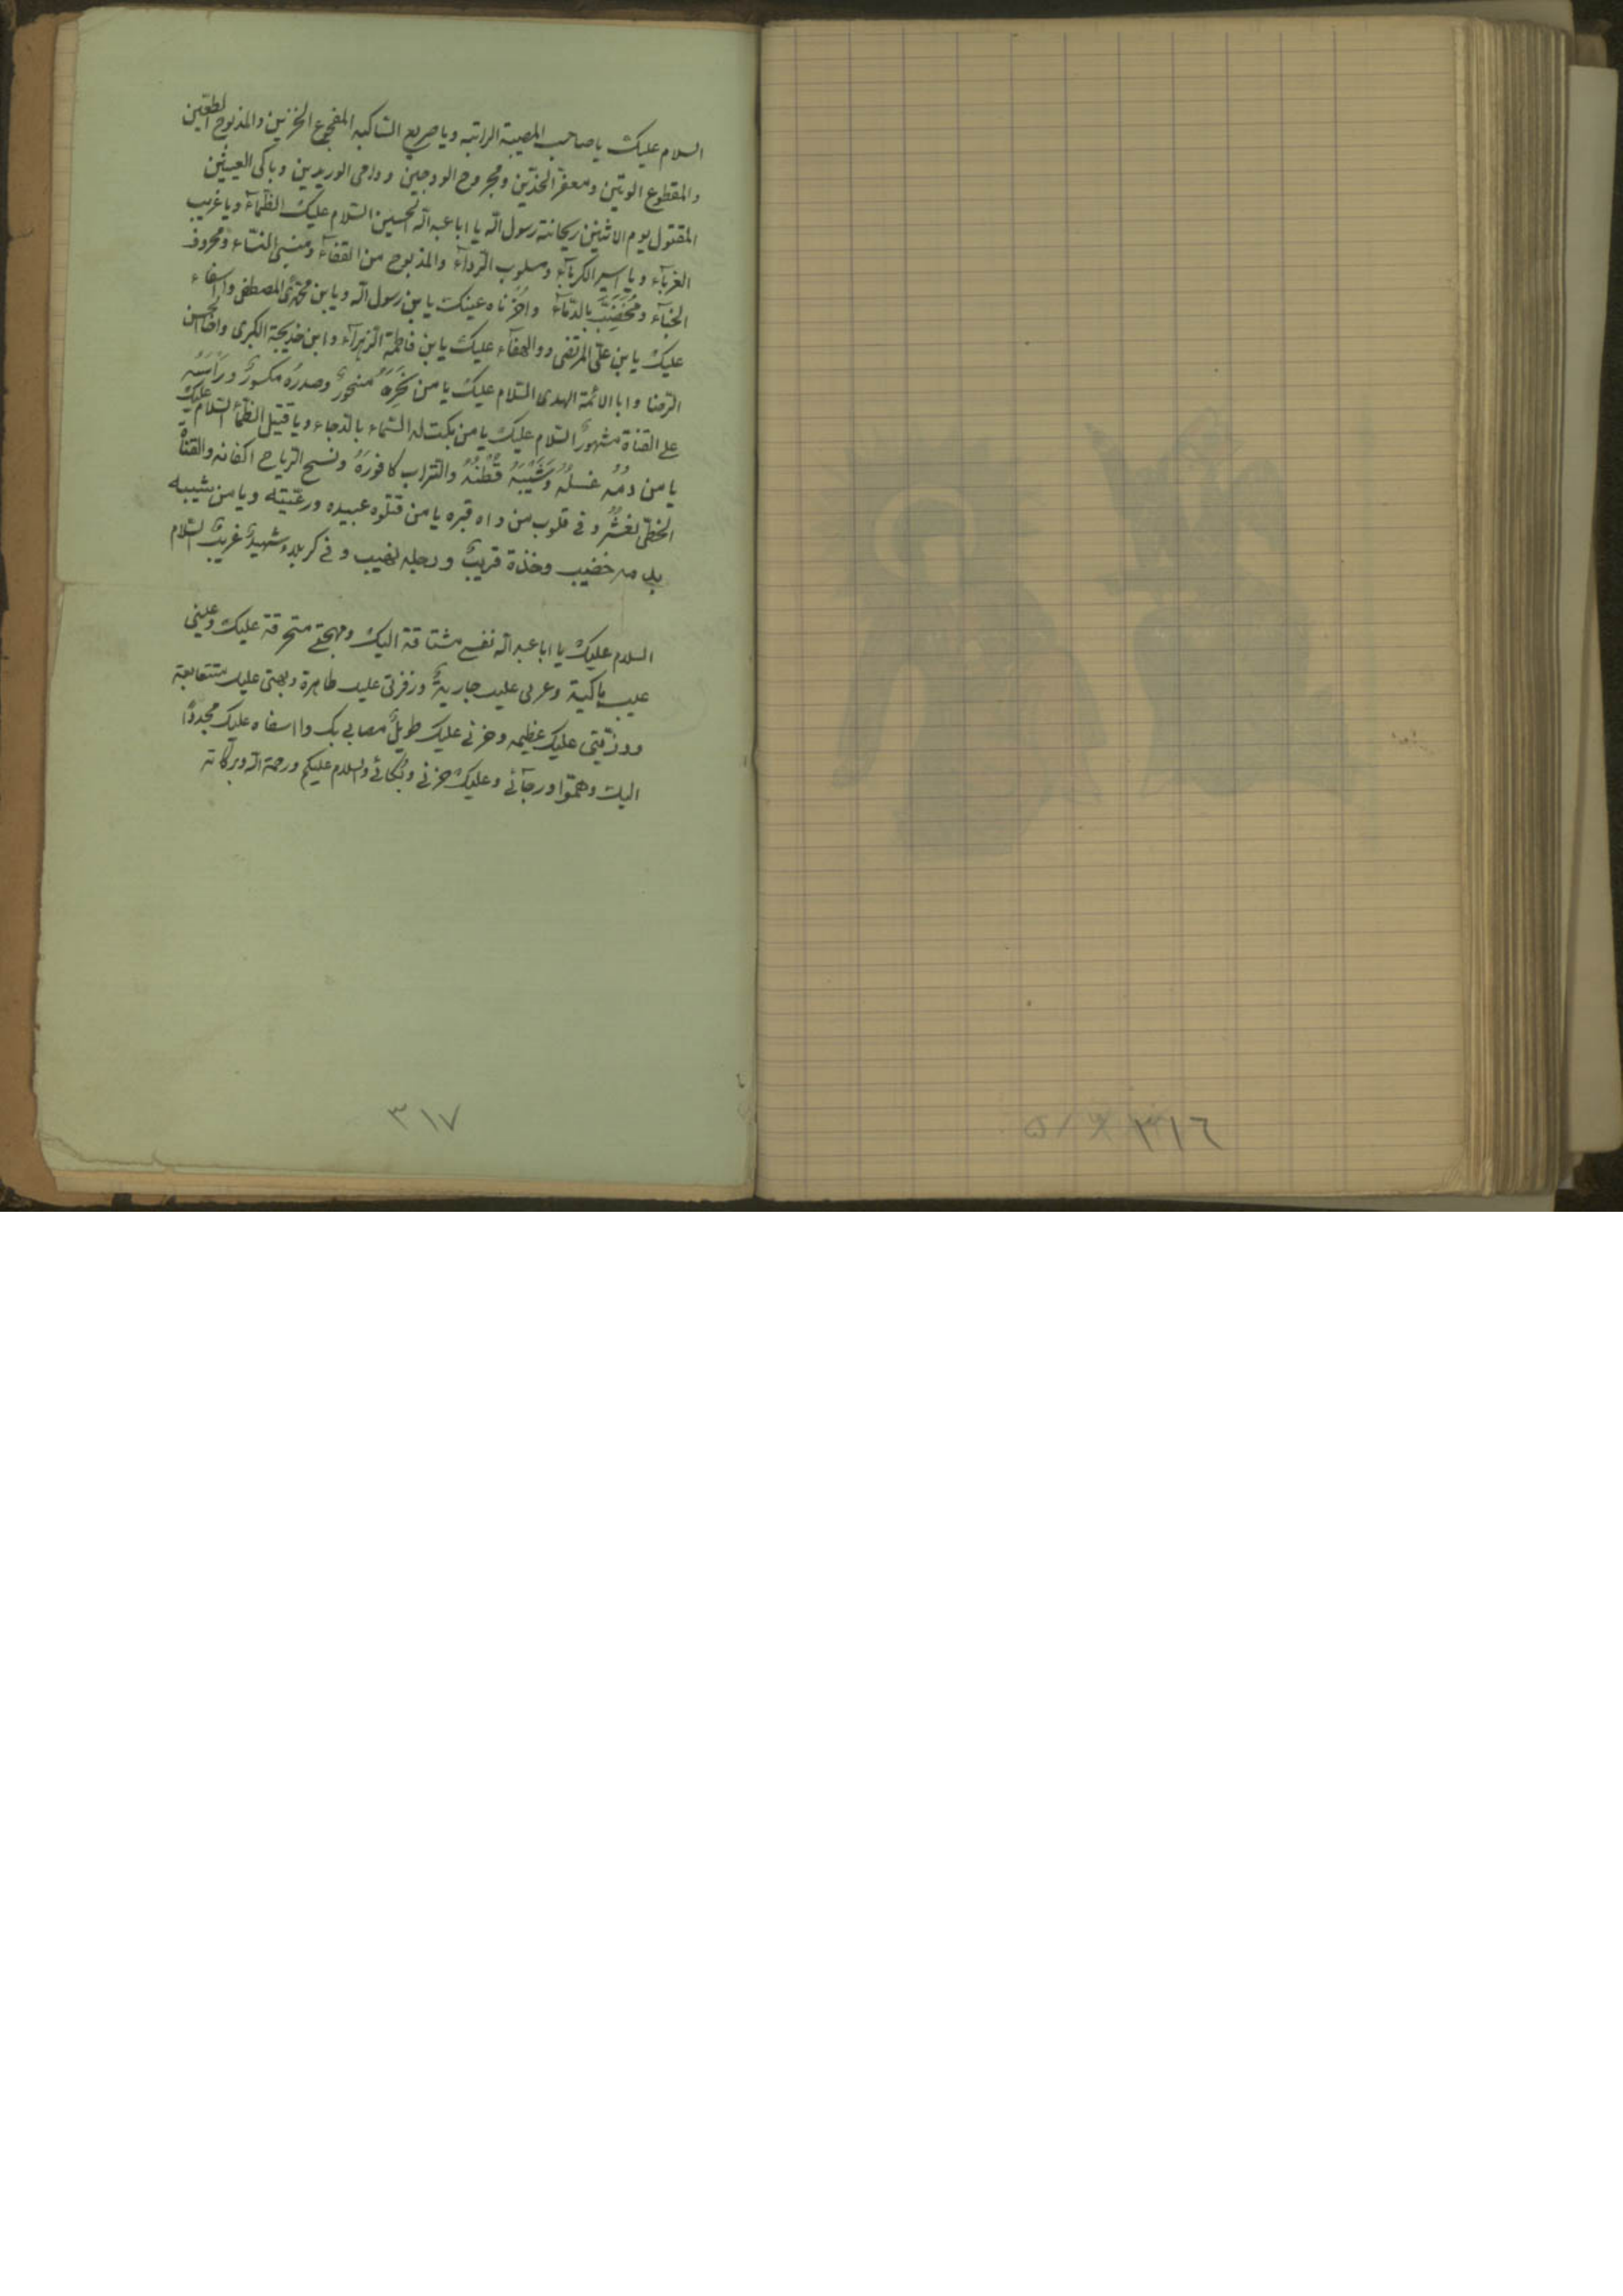 السلام عليك يا صاحب المصيبة الراتبه ويا صريع الساكبه المفجوع الحزين والمذبوح الطعين
والمقطوع الوتين ومعفّر الخدّين ومجروح الودجين ودامى الوريدين وباكى العينين
المقتول يوم الاثنين ريحانة رسول الله يا ابا عبد الله الحسين السّلام عليك الظمآء ويا غريب
الغربآء ويا اسير الكربآء ومسلوب الرّدآء والمذبوح من القفآء ومسبى النسّاء ومحروق
الخبآء ومخضّب بالدّمآء واحزناه عينك يا بن رسول الله ويا بن محمّد المصطفى وااسفاء
عليك يا بن علىّ المرتضى ووالهفآء عليك يا بن فاطمة الزهرآء وابن خديجة الكبرى واخا الحسن
الرّضا وابا الائمة الهدى السّلام عليك يا من نَحرَهُ منحورٌ وصدرُه مكسورٌ ورأسُه
على القناة مشهورٌ السّلام عليك يا من بكت له السّماء بالدجاء ويا قتيل الظمأ السّلام عليك
يا من دمُه غسلُهُ وشَيْبَهُ قُطْنُهُ والتّراب كافورَهُ ونسج الرّياح اكفانه والقناة
الخطّى نعشُهُ وفى قلوب من داه قبره يا من قتلوه عبيده ورعيّته ويا من شيبه
بدمه خضيب وخذة قريبٌ ورحله نهيب وفى كربلاء شهيدٌ غريبٌ السّلام
السلام عليك يا ابا عبد الله نفسى مشتاقة اليك ومهجتى متحرقة عليك وعينى
عليك باكية وعبرتى عليك جاريةٌ وزفرتى عليك ظاهرة ولهفتى عليك متتابعة
ورزيّتى عليك عظيمه وحزنى عليك طويلٌ مصابى بك وا اسفاه عليك مجددًا
اليك وهمّوا ورجآئى وعليك حزنى وبُكائى والسلام عليكم ورحمة الله وبركاته
٣١٧
٣١٦